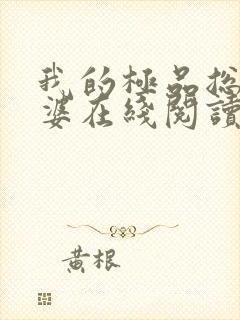 我的極品總
婆在綫閱讀
黃根